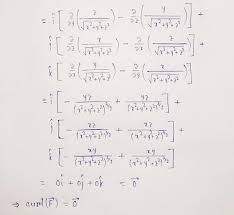 = î [ ∂/∂y (z/√(x²+y²+z²)) − ∂/∂z (y/√(x²+y²+z²)) ] +
ĵ [ ∂/∂z (x/√(x²+y²+z²)) − ∂/∂x (z/√(x²+y²+z²)) ] +
k̂ [ ∂/∂x (y/√(x²+y²+z²)) − ∂/∂y (x/√(x²+y²+z²)) ]
= î [ − yz/(x²+y²+z²)^(3/2) + yz/(x²+y²+z²)^(3/2) ] +
ĵ [ − xz/(x²+y²+z²)^(3/2) + xz/(x²+y²+z²)^(3/2) ] +
k̂ [ − xy/(x²+y²+z²)^(3/2) + xy/(x²+y²+z²)^(3/2) ]
= 0î + 0ĵ + 0k̂ = 0⃗
⇒ curl(F⃗) = 0⃗